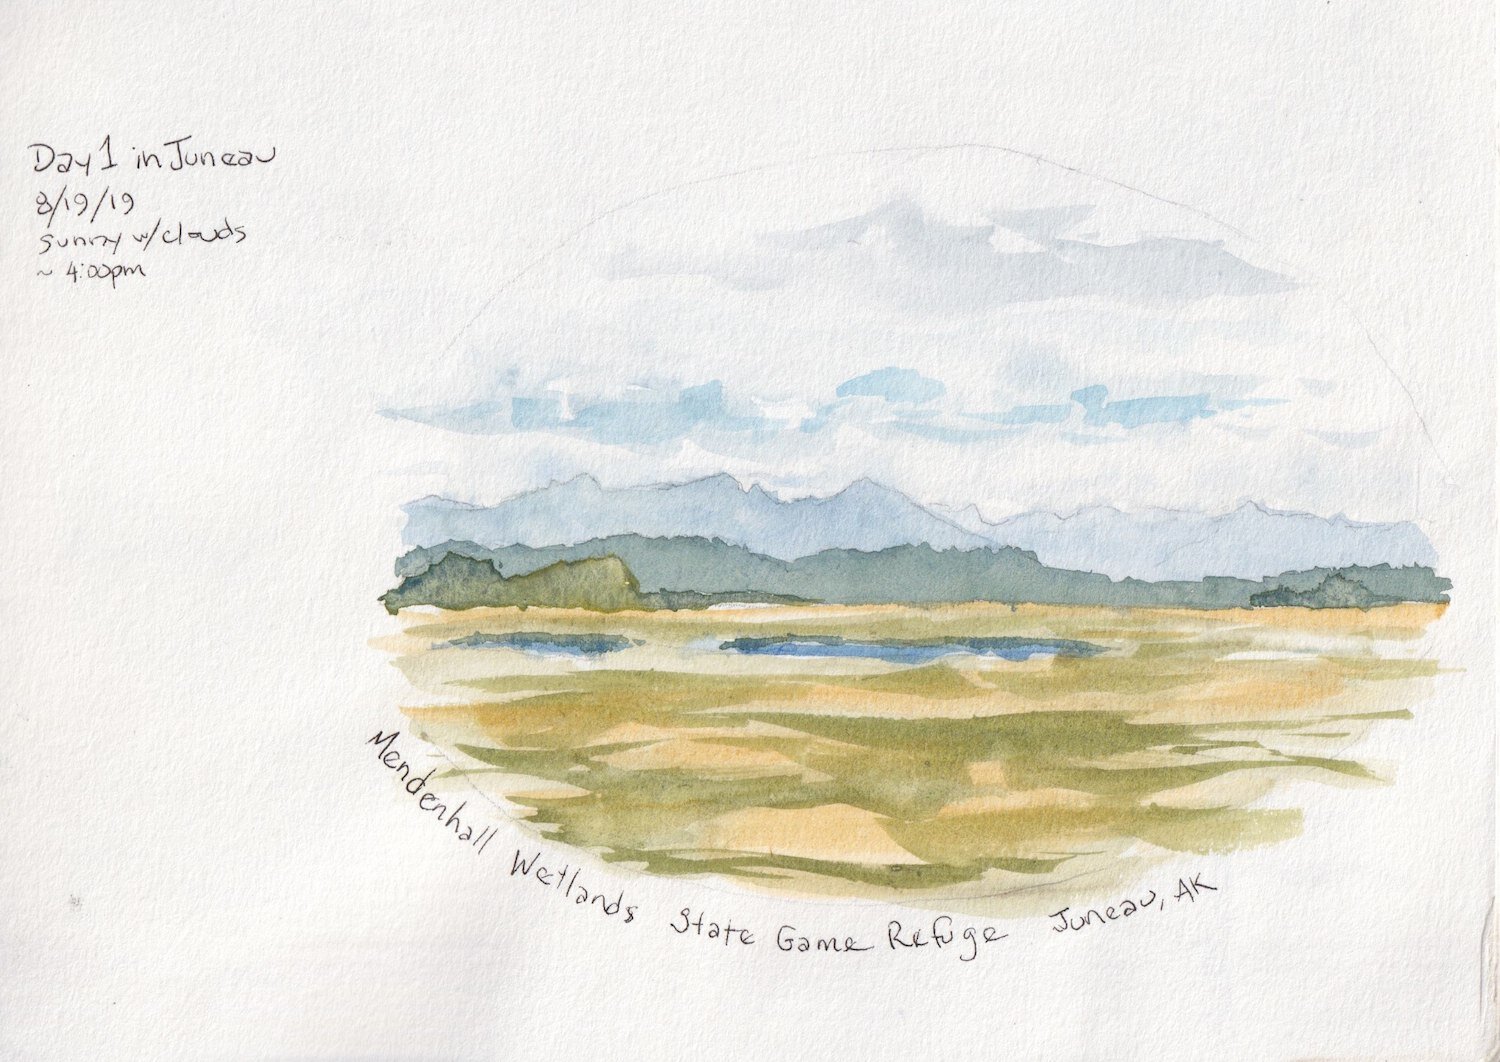 Day 1 in Juneau
8/19/19
sunny w/ clouds
~ 4:00pm
Mendenhall Wetlands State Game Refuge Juneau, AK